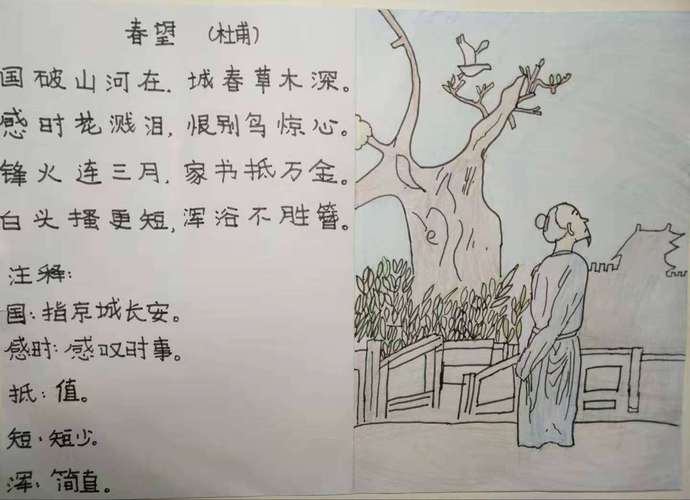 春望 （杜甫）
国破山河在，城春草木深。
感时花溅泪，恨别鸟惊心。
锋火连三月，家书抵万金。
白头搔更短，浑浴不胜簪。
注释：
国：指京城长安。
感时：感叹时事。
抵：值。
短：短少。
浑：简直。